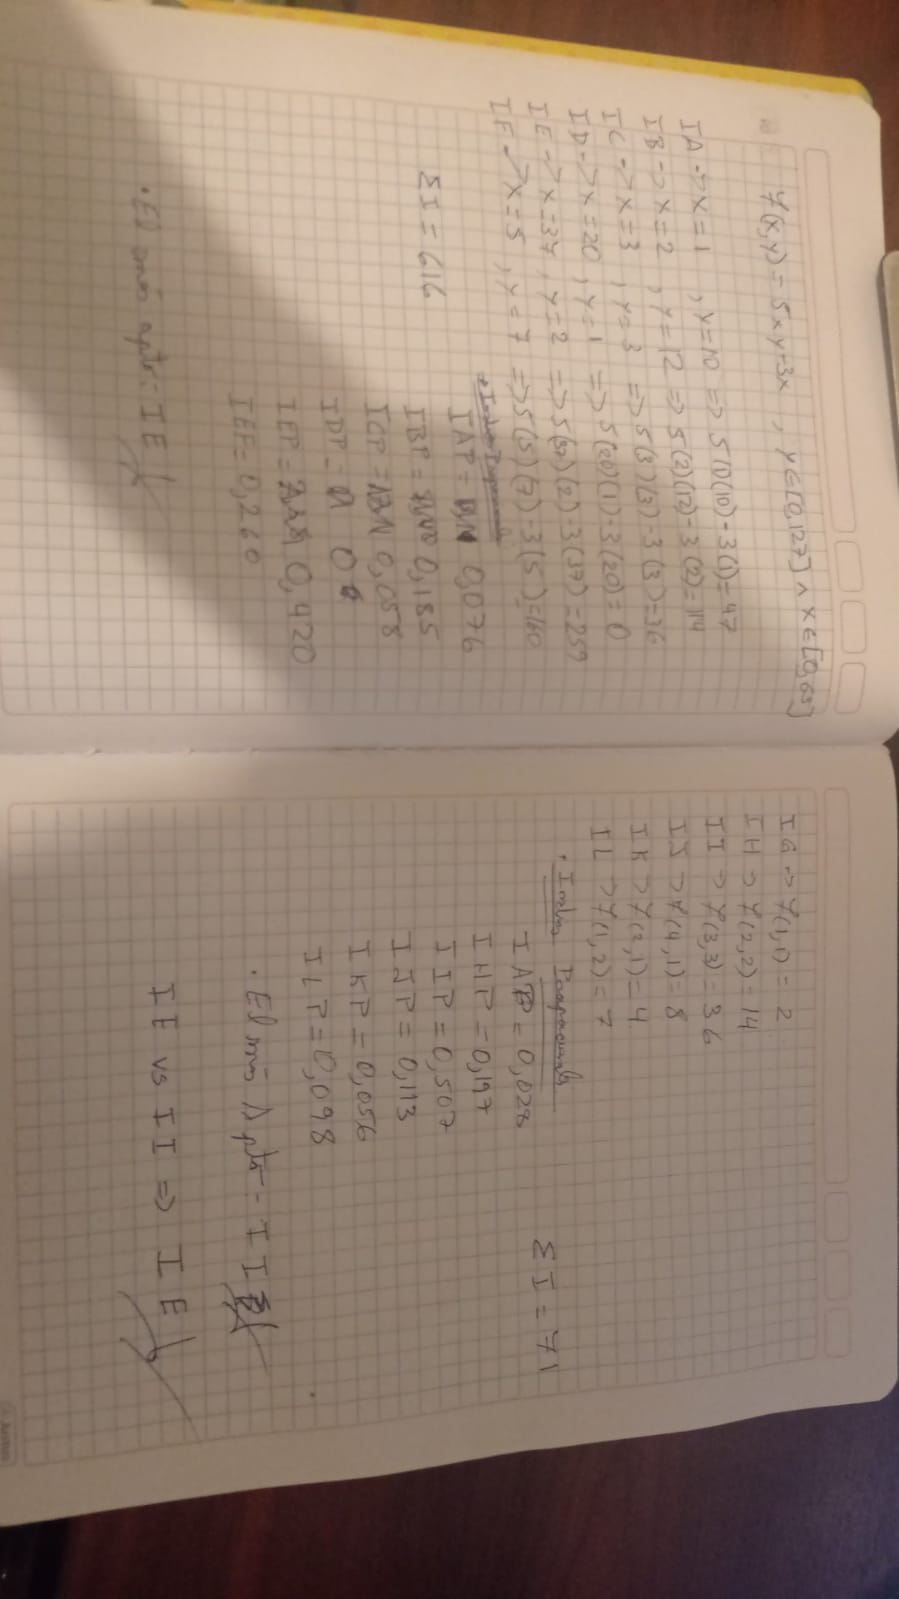 f(x,y) = 5xy-3x , y∈[0,127] ∧ x∈[0,63]
IA -> x=1 , y=10 => 5(1)(10)-3(1)=47
IB -> x=2 , y=12 => 5(2)(12)-3(2)=114
IC -> x=3 , y=3 => 5(3)(3)-3(3)=36
ID -> x=20 , y=1 => 5(20)(1)-3(20)=0
IE -> x=37 , y=2 => 5(37)(2)-3(37)=259
IF -> x=5 , y=7 => 5(5)(7)-3(5)=160
ΣI = 616
IAP = 0,076
IBP = 0,185
ICP = 0,058
IDP = 0
IEP = 0,420
IFF = 0,260
• El más apto: IE
IG -> f(1,1) = 2
IH -> f(2,2) = 14
II -> f(3,3) = 36
IJ -> f(4,1) = 8
IK -> f(2,1) = 4
IL -> f(1,2) = 7
ΣI = 71
IAP = 0,028
IHP = 0,197
IIP = 0,507
IJP = 0,113
IKP = 0,056
ILP = 0,098
• El más Apto: II
IE vs II => IE